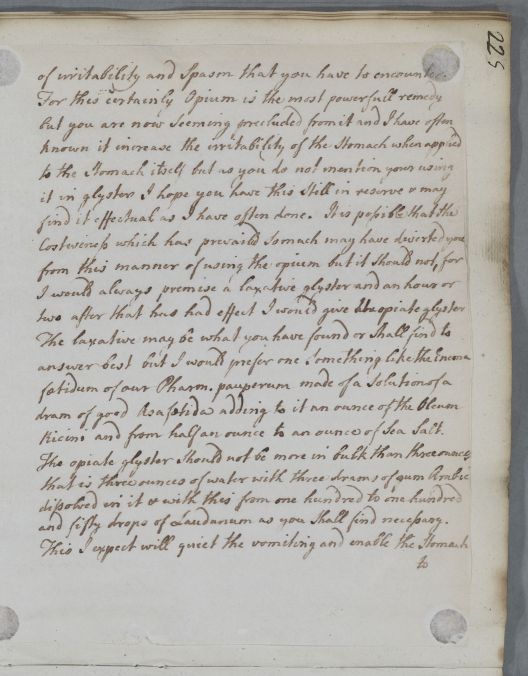 225
of irritability and Spasm that you have to encounter.
For this certainly Opium is the most powerfull remedy
but you are now seeming precluded from it and I have often
known it increase the irritability of the Stomach when applied
to the Stomach itself but as you do not mention your using
it in glyster I hope you have this still in reserve & may
find it effectual as I have often done. It is possible that the
Costiveness which has prevaild so much may have diverted you
from this manner of using the opium but it should not, for
I would always premise a laxative glyster and an hour or
two after that has had effect I would give the opiate glyster
The laxative may be what you have found or shall find to
answer best but I would prefer one something like the Enema
fœtidum of our Pharm. pauperum made of a Solution of a
dram of good Asafœtida adding to it an ounce of the Oleum
Ricini and from half an ounce to an ounce of Sea Salt.
The opiate glyster should not be more in bulk than three ounces
that is three ounces of water with three drams of gum Arabic
dissolved in it & with this from one hundred to one hundred
and fifty drops of Laudanum as you shall find necessary.
This I expect will quiet the vomiting and enable the Stomach
to